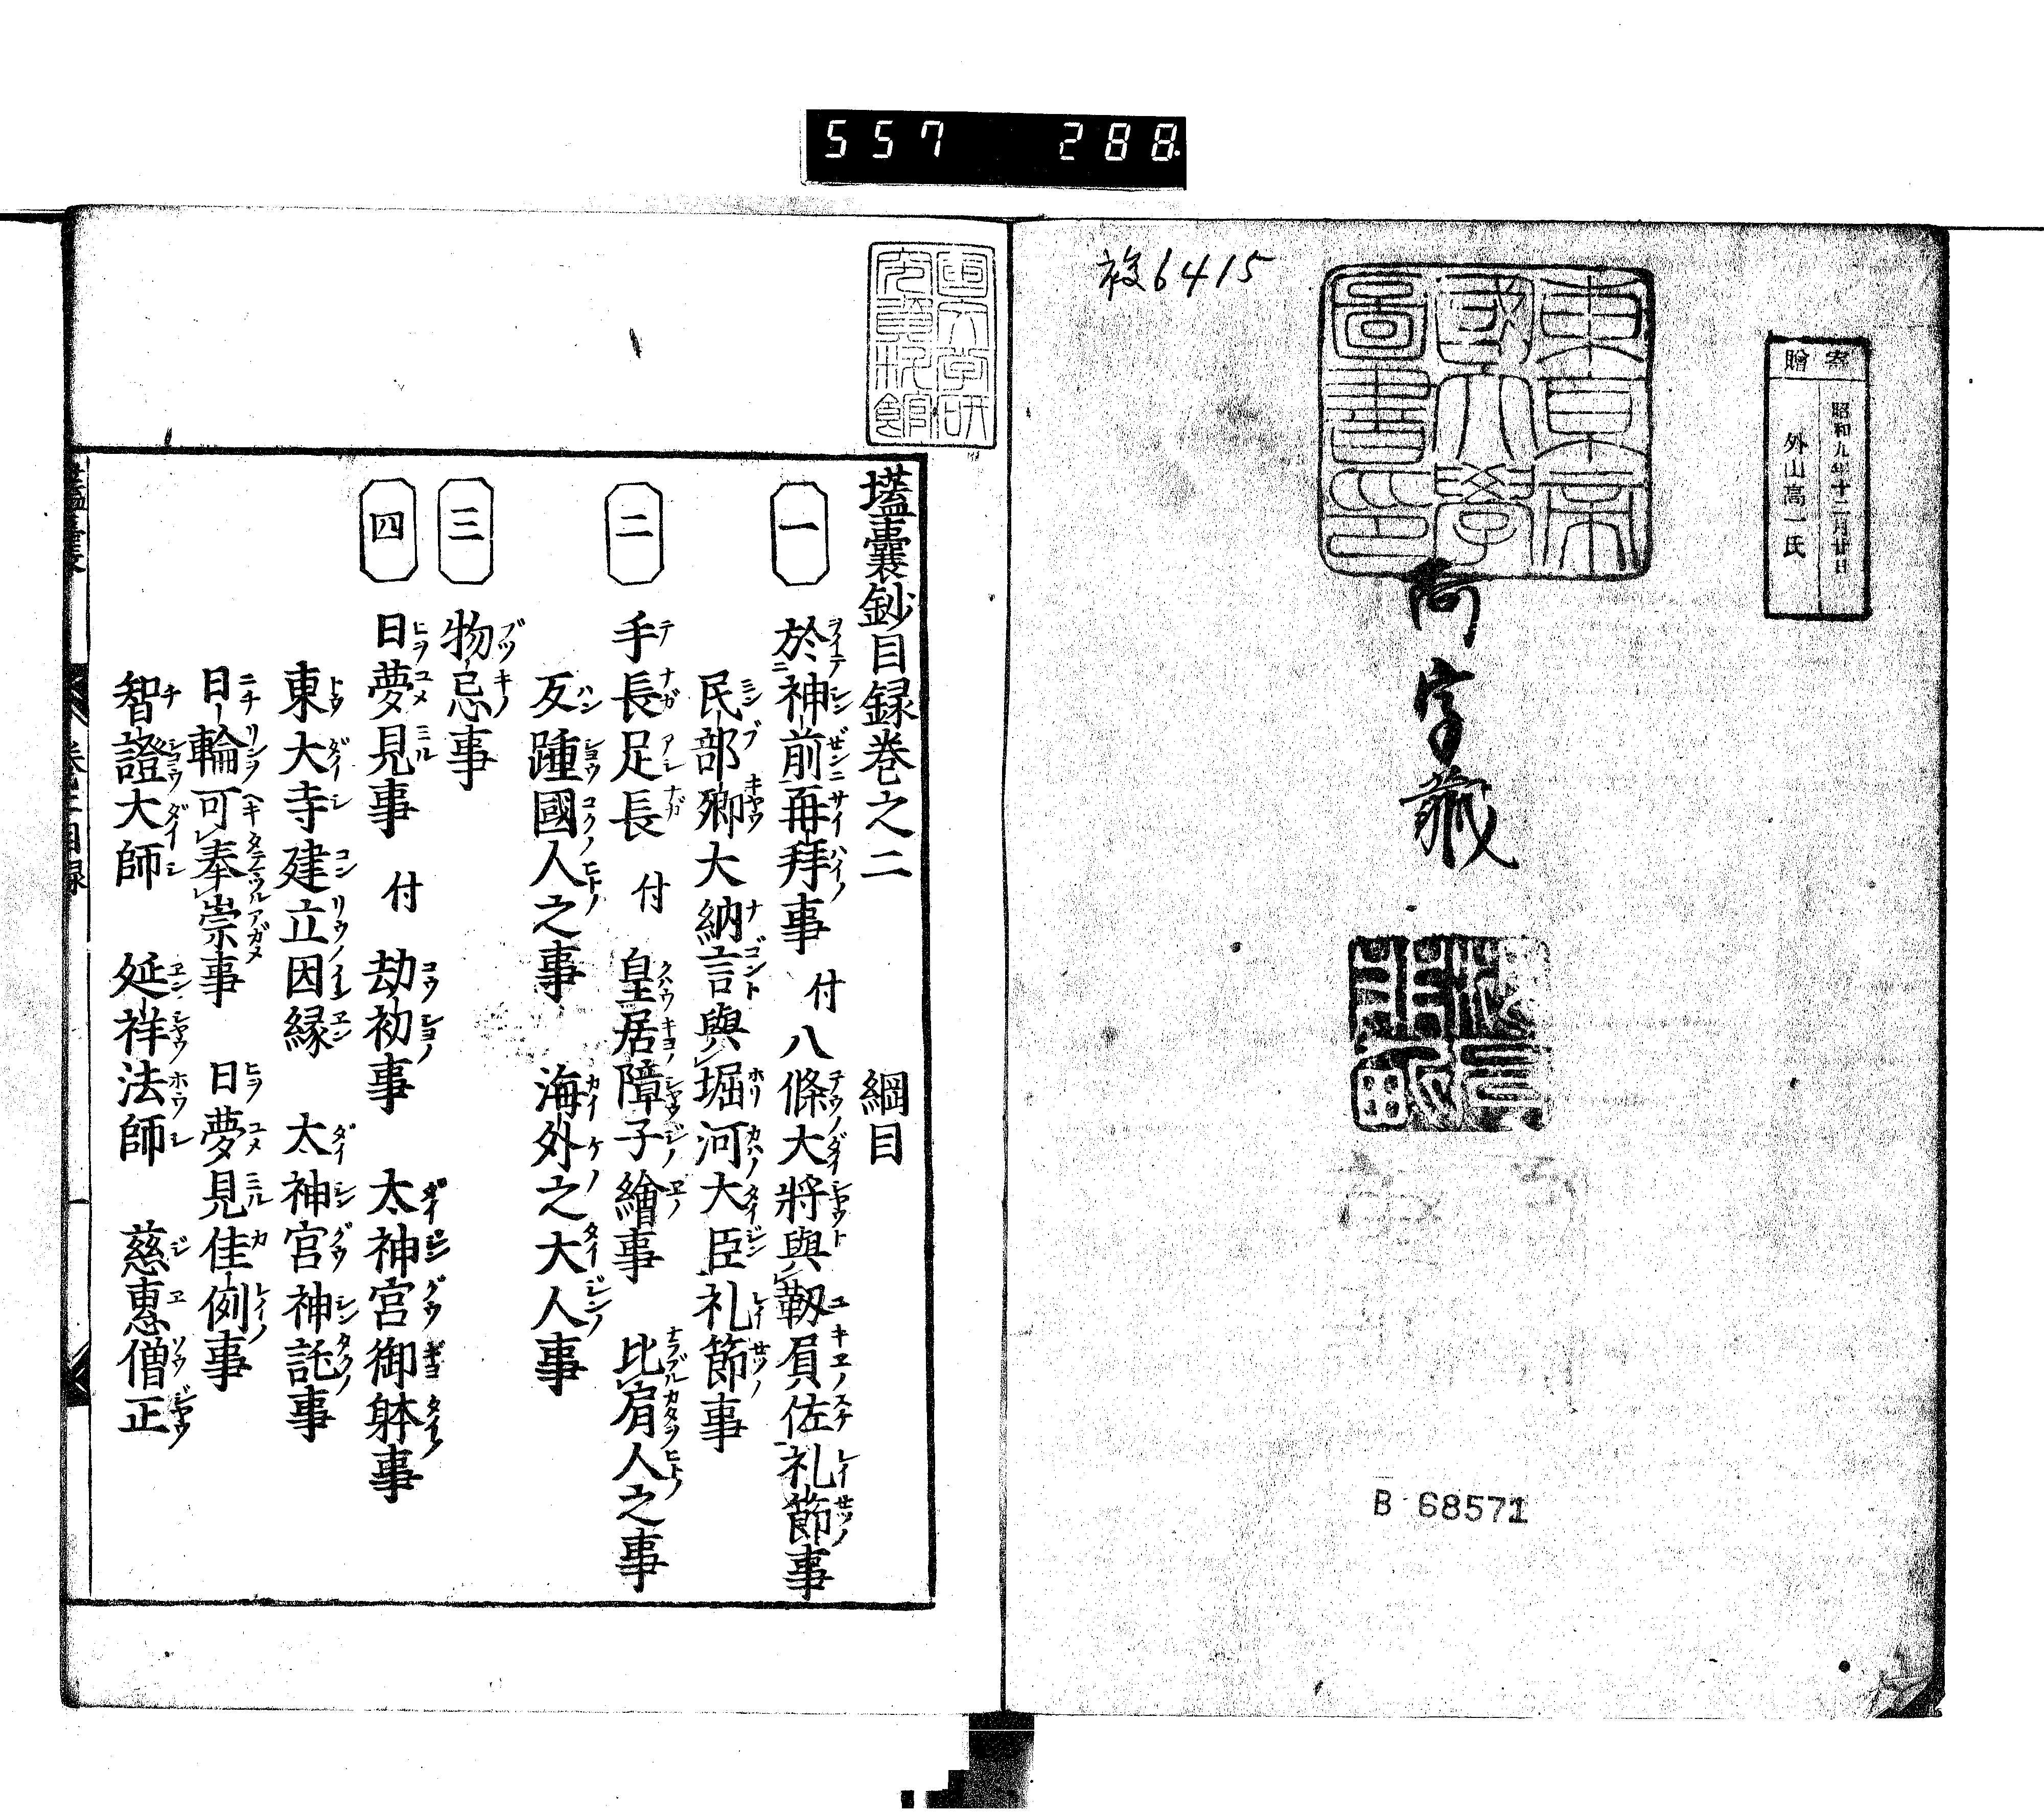 557 288.
寄贈
昭和九年十二月廿日
外山高一氏
複6415
東京帝
國大學
圖書印
阿字藏
B 68571
國文学研
究資料館
壒囊鈔目録巻之二 綱目
一 於神前再拜事 付 八條大將與靱負佐礼節事
民部卿大納言與堀河大臣礼節事
二 手長足長 付 皇居障子繪事 比肩人之事
反踵國人之事 海外之大人事
三 物忌事
四 日夢見事 付 劫初事 太神宮御躰事
東大寺建立因縁 太神宮神託事
日輪可奉崇事 日夢見佳例事
智證大師 延祥法師 慈惠僧正